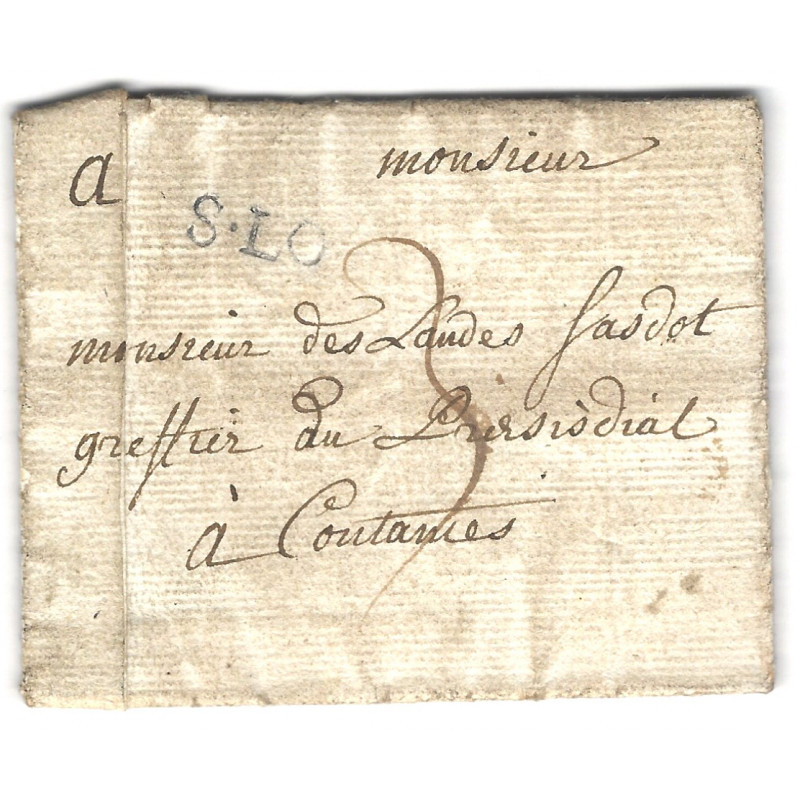 a monsieur
S·LO
3
monsieur des Landes Gasdot
greffier du Prersisdial
à Coutances